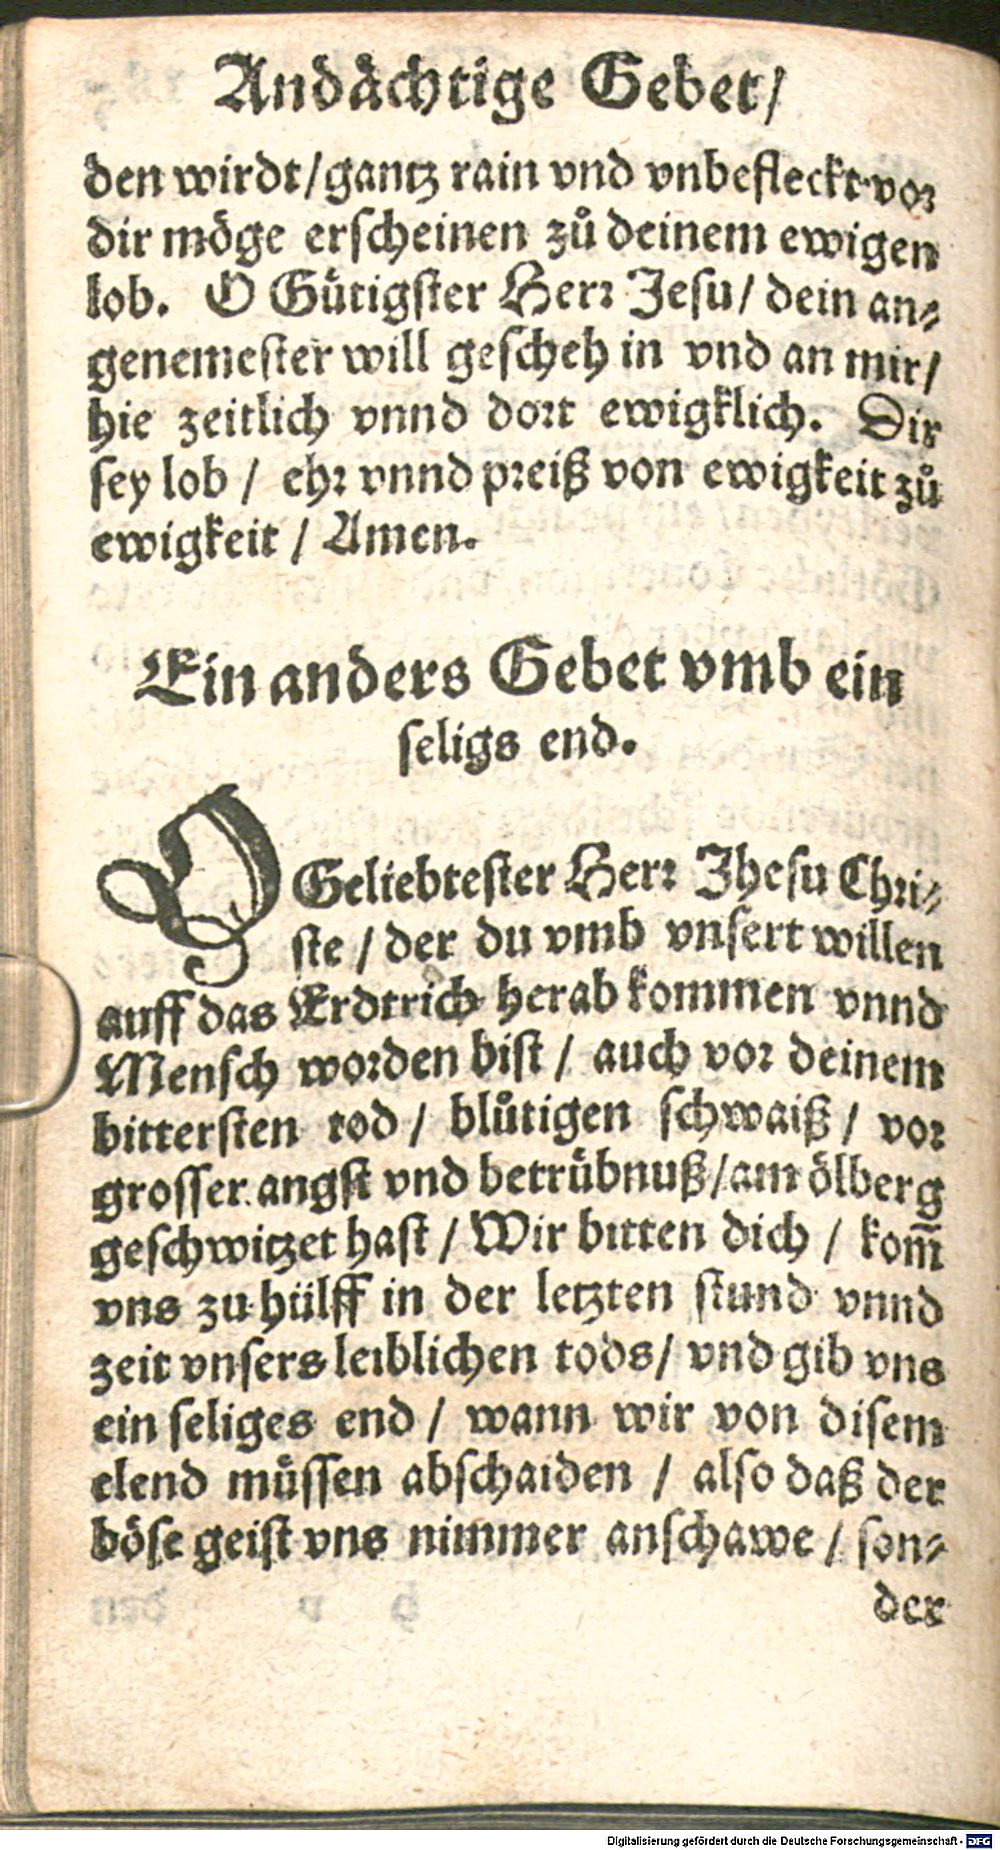 Andaͤchtige Gebet/
den wirdt/gantz rain vnd vnbefleckt vor
dir moͤge erscheinen zuͦ deinem ewigen
lob. O Guͤtigster Herr Jesu/ dein an⸗
genemester will gescheh in vnd an mir/
hie zeitlich vnnd dort ewigklich. Dir
sey lob / ehr vnnd preiß von ewigkeit zuͦ
ewigkeit / Amen.
Ein anders Gebet vmb ein
seligs end.
O Geliebtester Herr Jhesu Chri⸗
ste / der du vmb vnsert willen
auff das Erdtrich herab kommen vnnd
Mensch worden bist / auch vor deinem
bittersten tod / bluͤtigen schwaiß / vor
grosser angst vnd betruͤbnuß/am oͤlberg
geschwitzet hast / Wir bitten dich / kom̃
vns zu hülff in der letzten stund vnnd
zeit vnsers leiblichen tods/ vnd gib vns
ein seliges end / wann wir von disem
elend muͤssen abschaiden / also daß der
boͤse geist vns nimmer anschawe / son⸗
der
Digitalisierung gefördert durch die Deutsche Forschungsgemeinschaft - DFG